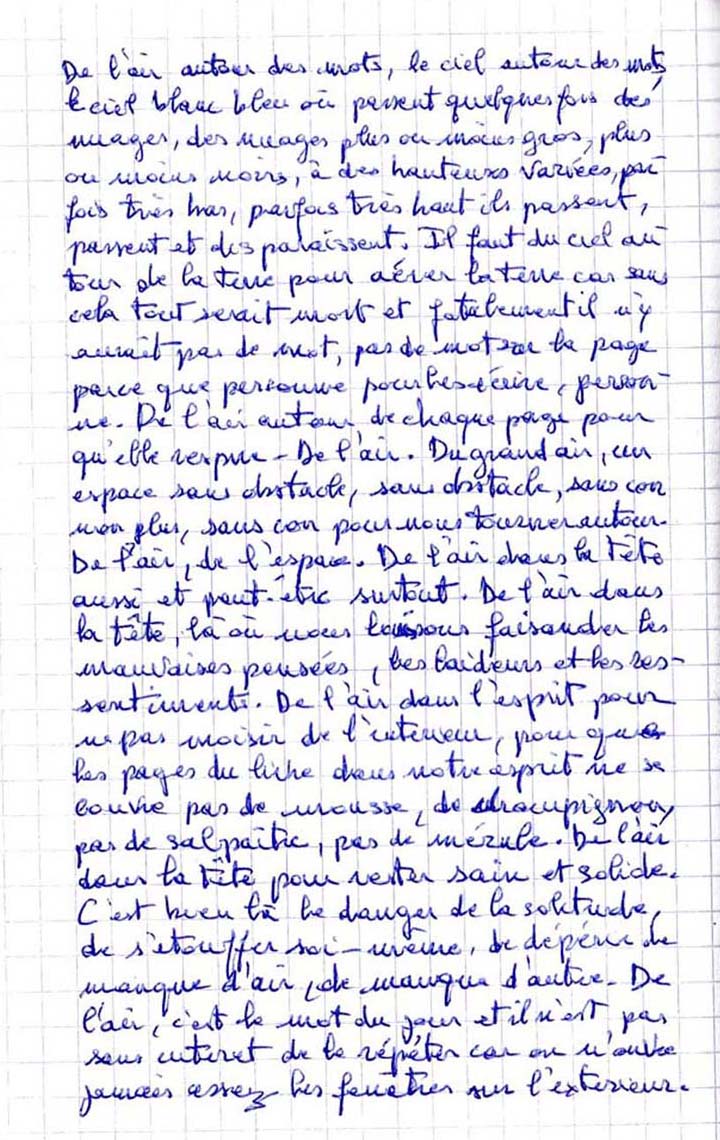 De l'air autour des mots, le ciel autour des mots
le ciel blanc bleu où passent quelques fois des
nuages, des nuages plus ou moins gros, plus
ou moins noirs, à des hauteurs variées, par
fois très bas, parfois très haut ils passent,
passent et disparaissent. Il faut du ciel au
tour de la terre pour aérer la terre car sans
cela tout serait mort et fatalement il n'y
aurait pas de mot, pas de mot sur la page
parce que personne pour les écrire, person-
ne. De l'air autour de chaque page pour
qu'elle respire - De l'air. Du grand air, un
espace sans obstacle, sans obstacle, sans con
non plus, sans con pour nous tourner autour.
De l'air, de l'espace. De l'air dans la tête
aussi et peut-être surtout. De l'air dans
la tête, là où nous laissons faisander les
mauvaises pensées, les laideurs et les res-
sentiments. De l'air dans l'esprit pour
ne pas moisir de l'interieur, pour que
les pages du livre dans notre esprit ne se
couvre pas de mousse, de
pas de salpaître, pas de mérule. De l'air
dans la tête pour rester sain et solide.
C'est bien là le danger de la solitude,
de s'etouffer soi-même, de dépérir de
manque d'air, de manque d'autre. De
l'air, c'est le mot du jour et il n'est pas
sans interet de le répéter car on n'ouvre
jamais assez les fenêtres sur l'exterieur.